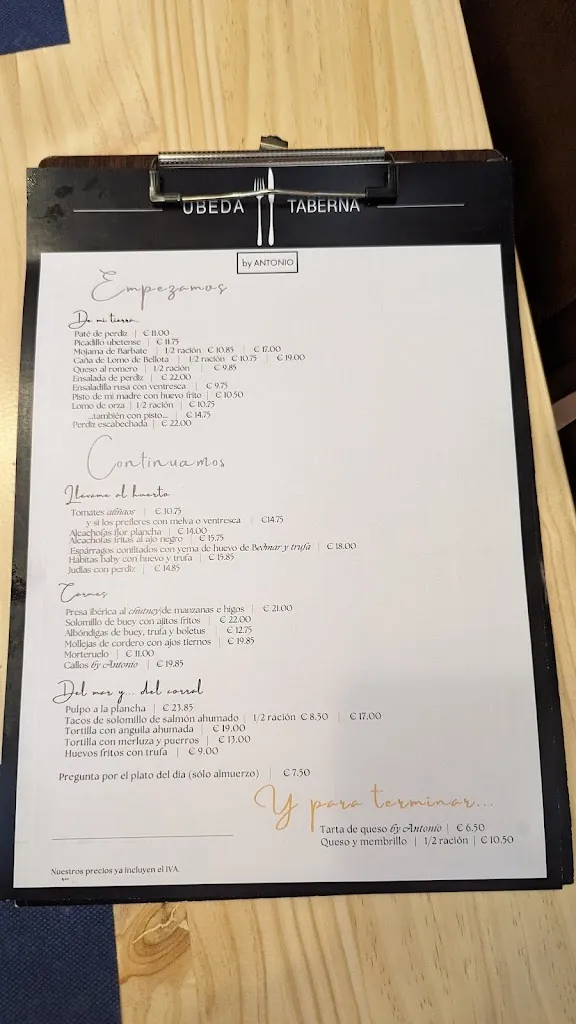 ÚBEDA TABERNA
by ANTONIO
Empezamos
De mi tierra...
Paté de perdiz | € 11.00
Picadillo ubetense | € 11.75
Mojama de Barbate | 1/2 ración € 10.85 | € 17.00
Caña de Lomo de Bellota | 1/2 ración € 10.75 | € 19.00
Queso al romero | 1/2 ración | € 9.85
Ensalada de perdiz | € 22.00
Ensaladilla rusa con ventresca | € 9.75
Pisto de mi madre con huevo frito | € 10.50
Lomo de orza | 1/2 ración | € 10.75
...también con pisto... | € 14.75
Perdiz escabechada | € 22.00
Continuamos
Llévame al huerto
Tomates aliñaos | € 10.75
y si los prefieres con melva o ventresca | €14.75
Alcachofas flor plancha | € 14.00
Alcachofas fritas al ajo negro | € 15.75
Espárragos confitados con yema de huevo de Bedmar y trufa | € 18.00
Habitas baby con huevo y trufa | € 15.85
Judías con perdiz | € 14.85
Carnes
Presa ibérica al chutney de manzanas e higos | € 21.00
Solomillo de buey con ajitos fritos | € 22.00
Albóndigas de buey, trufa y boletus | € 12.75
Mollejas de cordero con ajos tiernos | € 19.85
Morteruelo | € 11.00
Callos by Antonio | € 19.85
Del mar y... del corral
Pulpo a la plancha | € 23.85
Tacos de solomillo de salmón ahumado | 1/2 ración € 8.50 | € 17.00
Tortilla con anguila ahumada | € 19.00
Tortilla con merluza y puerros | € 13.00
Huevos fritos con trufa | € 9.00
Pregunta por el plato del día (sólo almuerzo) | € 7.50
Y para terminar...
Tarta de queso by Antonio | € 6.50
Queso y membrillo | 1/2 ración | € 10.50
Nuestros precios ya incluyen el IVA.